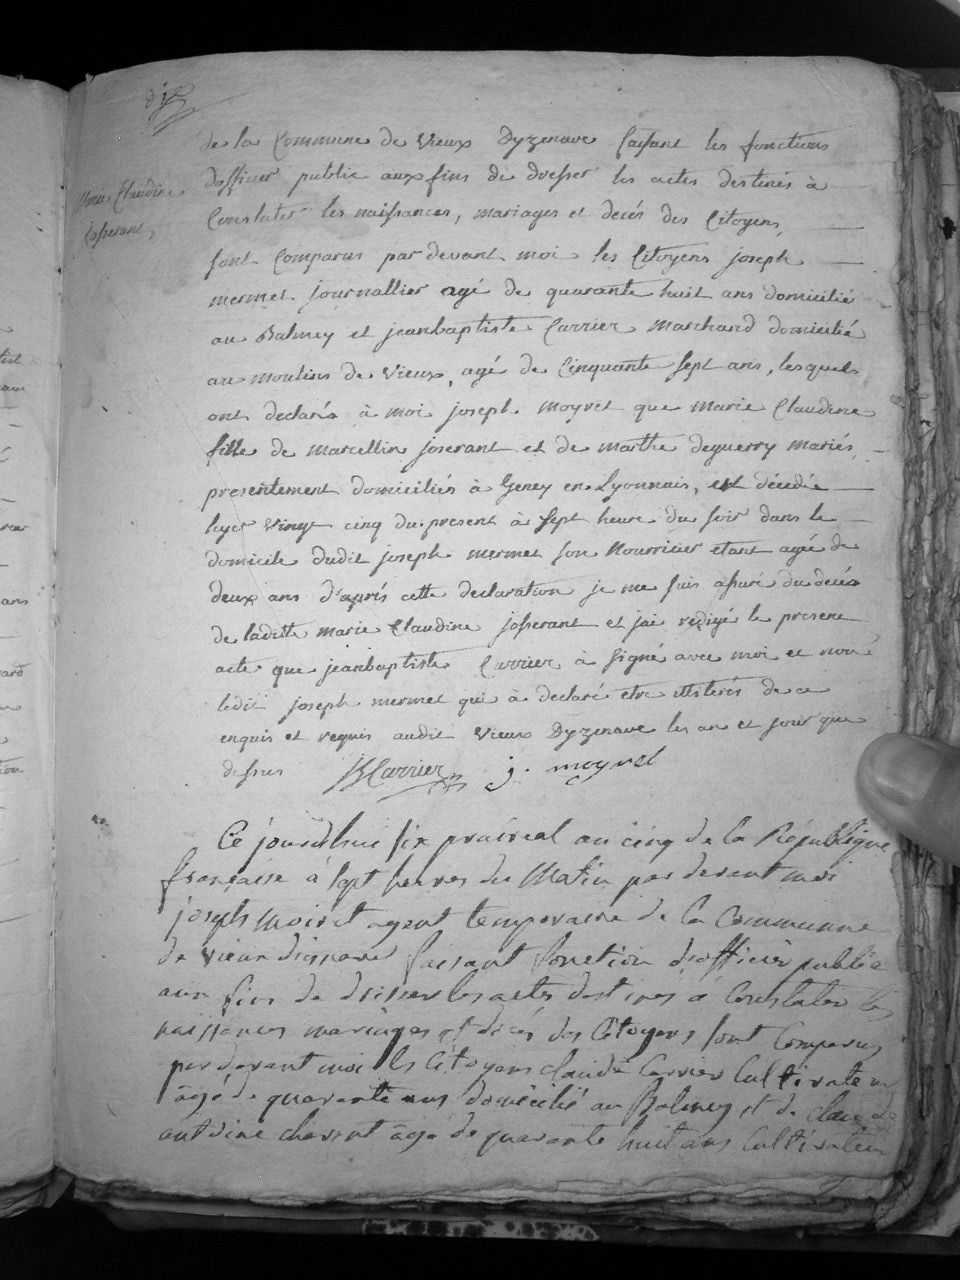 dix
Marie Claudine
Josserant,
de la Commune de Vieux Dyzenave faisant les fonctions
dofficier public aux fins de dresser les actes destinés à
Constater les naissances, mariages et decés des Citoyens,
sont Comparus pardevant moi les Citoyens joseph
mermet journallier agé de quarante huit ans domicilié
au Balmey et jeanbaptiste Carrier Marchand domicilié
au moulins de Vieux, agé de Cinquante sept ans, lesquels
ont declarés à moi joseph moyret que marie Claudine
fille de marcellin joserant et de marthe deguerry mariés,
presentement domiciliés à Geney en Lyonnais, est décedée
hyer vingt cinq du present à sept heure du soir dans le
domicile dudit joseph mermet son Nourricier etant agée de
deux ans d'aprés cette declaration je me suis assuré du decés
de laditte marie Claudine josserant et jai redigé le present
acte que jeanbaptiste Carrier à signé avec moi et non
ledit joseph mermet qui à declaré etre illiterés de ce
enquis et requis audit Vieux Dyzenave les an et jour que
dessus JBCarrier j. moyret
Ce jourdhui six prairial an cinq de la République
française à sept heures du Matin par devant moi
joseph Moiret agent temporaire de la Commune
de vieux disnave faisant fonction dofficier public
aux fins de dresser les actes destines a Constater les
naissances mariages et décés des Citoyens sont Comparus
pardevant moi les Citoyens claude Carrier Cultivateur
âgé de quarante ans domicilié au Balmey et de claude
antoine chevent âge de quarante huit ans Cultivateur